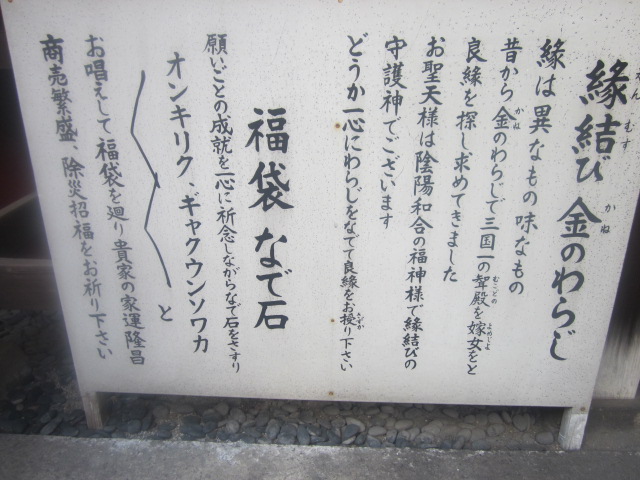 縁結び 金のわらじ
縁は異なもの味なもの
昔から金のわらじで三国一の聟殿を嫁女をと
良縁を探し求めてきました
お聖天様は陰陽和合の福神様で縁結びの
守護神でございます
どうか一心にわらじをなでて良縁をお授り下さい
福袋なで石
願いごとの成就を一心に祈念しながらなで石をさすり
オンキリク、ギャクウンソワカ
と
お唱えして福袋を廻り貴家の家運隆昌
商売繁盛、除災招福をお祈り下さい